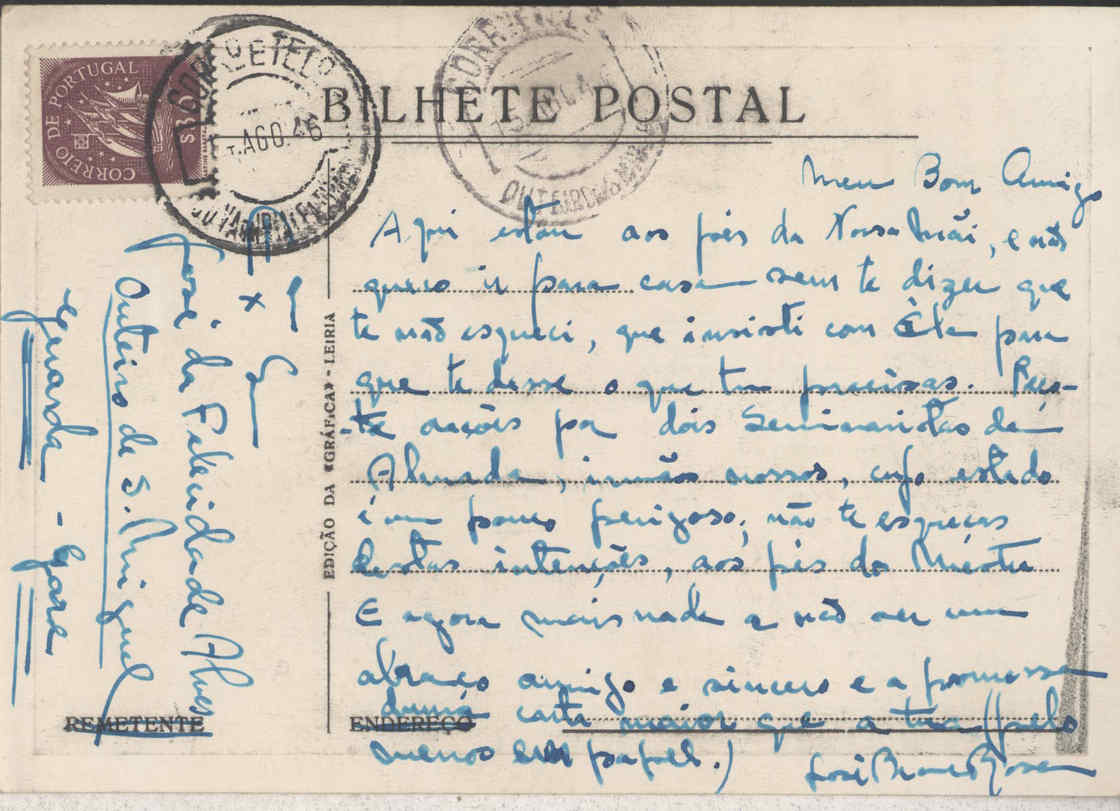 BILHETE POSTAL
CORREIO DE PORTUGAL
$30
CORREIO TELO
AGO.46
CORREIO TEL
OUTEIRO
Meu Bom Amigo
Aqui estou aos pés da Nossa Mãi, e não
quero ir para casa sem te dizer que
te não esqueci, que insisti com Ela para
que te desse o que tu precisas. Pres-
-ta orações por dois Seminaristas de
Almada, irmãos nossos, cujo estado
é um pouco perigoso; não te esqueças
destas intenções, aos pés do Mestre
E agora mais nada a não ser um
abraço amigo e sincero e a promessa
duma carta maior que a tua (pelo
menos em papel.)
José
EDIÇÃO DA «GRÁFICA» - LEIRIA
José da Felicidade Alves
Outeiro de S. Miguel
Guarda - Gare
REMETENTE
ENDEREÇO